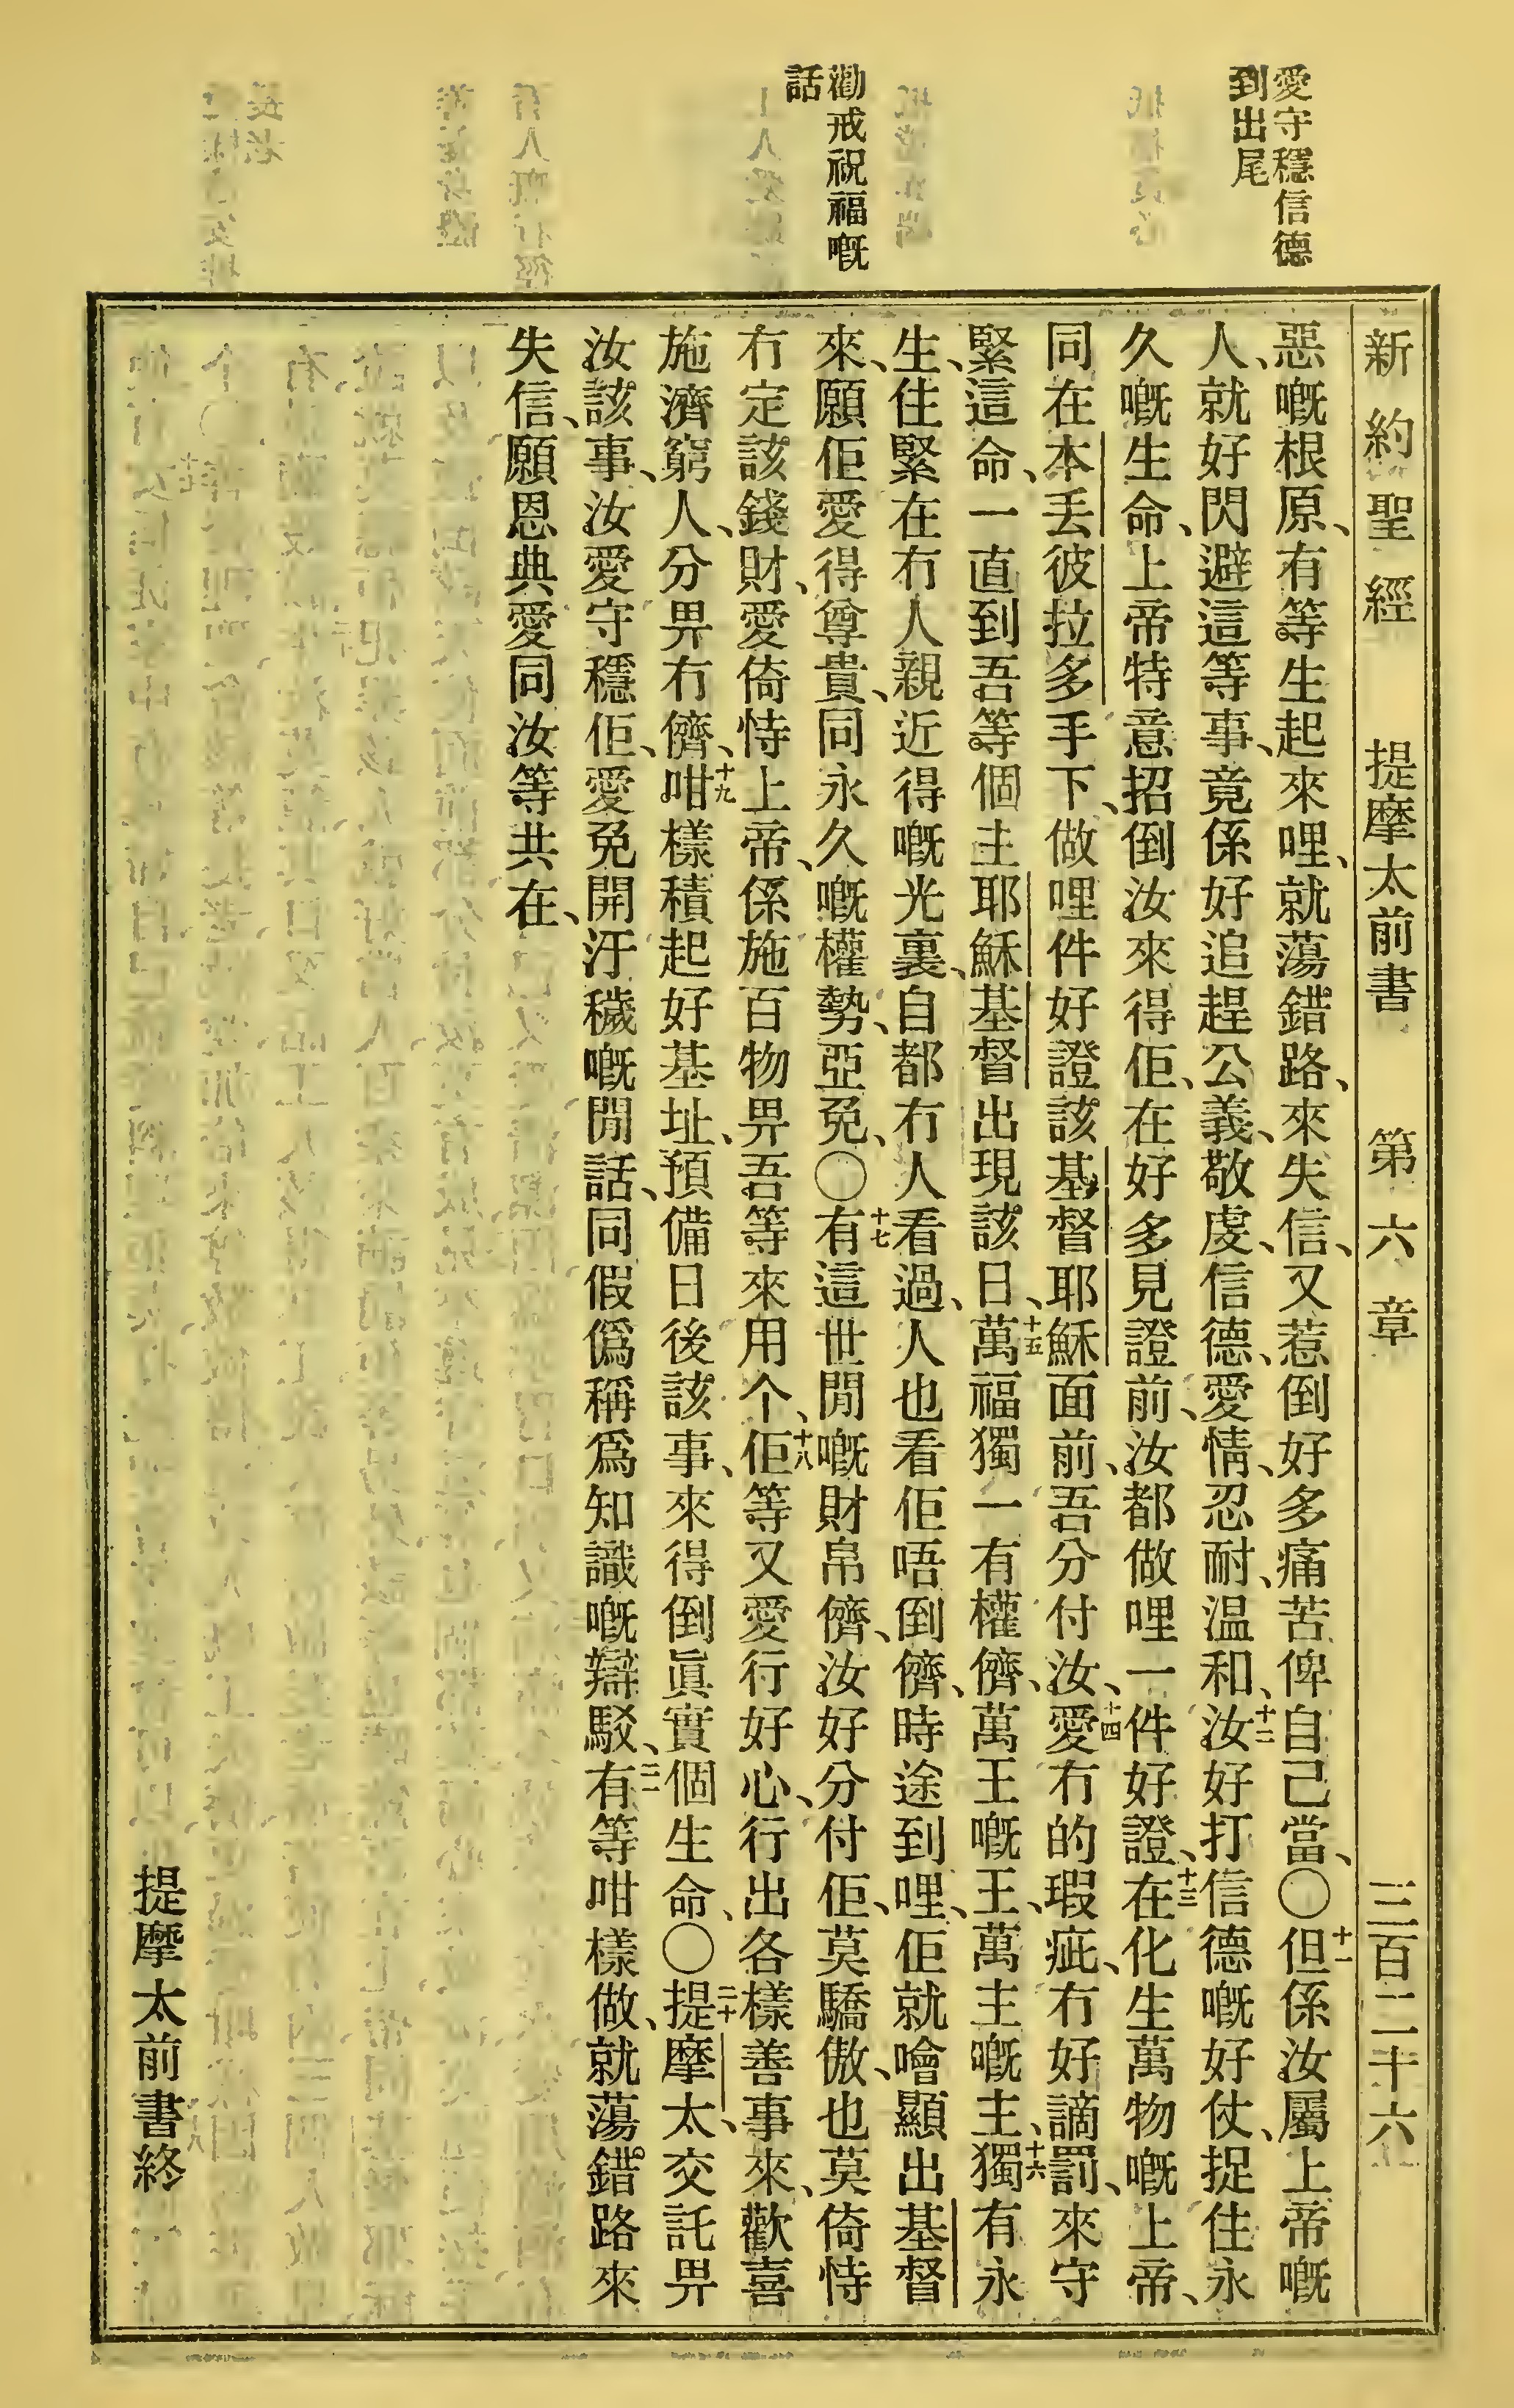 愛守穩信德
到出尾
勸戒祝福嘅
話
新約聖經 提摩太前書 第六章 三百二十六
惡嘅根原、有等生起來哩、就蕩錯路、來失信、又惹倒好多痛苦俾自己當、〇十一但係汝屬上帝嘅
人、就好閃避這等事、竟係好追趕公義、敬虔、信德、愛情、忍耐、温和、十二汝好打信德嘅好仗、捉住永
久嘅生命、上帝特意招倒汝來得佢、在好多見證前、汝都做哩一件好證、十三在化生萬物嘅上帝、
同在本丢彼拉多手下、做哩件好證該基督耶穌面前、吾分付汝、十四愛冇的瑕疵、冇好謫罰、來守
緊這命、一直到吾等個主耶穌基督出現該日、十五萬福獨一有權儕、萬王嘅王、萬主嘅主、十六獨有永
生、住緊在冇人親近得嘅光裏、自都冇人看過、人也看佢唔倒儕、時途到哩、佢就噲顯出基督
來、願佢愛得尊貴、同永久嘅權勢、亞免、〇十七有這世間嘅財帛儕、汝好分付佢、莫驕傲、也莫倚恃
冇定該錢財、愛倚恃上帝、係施百物畀吾等來用个、十八佢等又愛行好心、行出各樣善事來、歡喜
施濟窮人、分畀冇儕、十九咁樣積起好基址、預備日後該事、來得倒眞實個生命、〇二十提摩太、交託畀
汝該事、汝愛守穩佢、愛免開汙穢嘅閒話、同假僞稱爲知識嘅辯駁、二一有等咁樣做、就蕩錯路來
失信、願恩典愛同汝等共在、
提摩太前書終